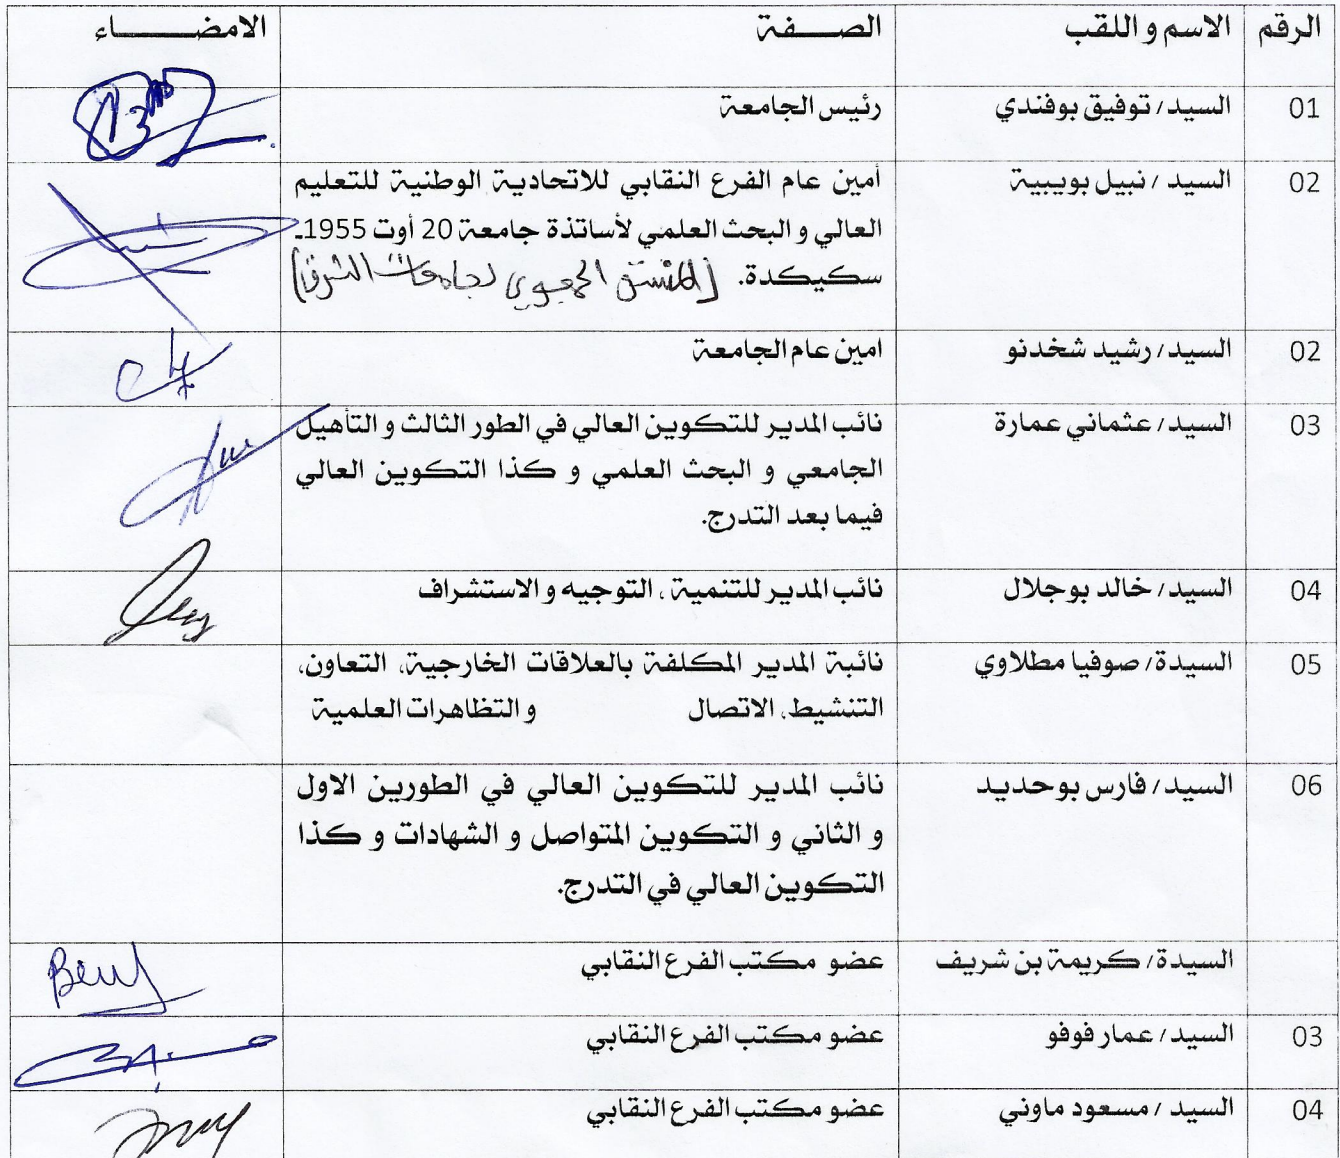 الرقم الاسم و اللقب الصــــفة الامضـــــــــاء
01 السيد/ توفيق بوفندي رئيس الجامعة
02 السيد / نبيل بويبية أمين عام الفرع النقابي للاتحادية الوطنية للتعليم
العالي و البحث العلمي لأساتذة جامعة 20 أوت 1955ـ
سكيكدة. (المنسق الجهوي لجامعات الشرق)
02 السيد/ رشيد شخدنو امين عام الجامعة
03 السيد/ عثماني عمارة نائب المدير للتكوين العالي في الطور الثالث و التأهيل
الجامعي و البحث العلمي و كذا التكوين العالي
فيما بعد التدرج.
04 السيد/ خالد بوجلال نائب المدير للتنمية ، التوجيه و الاستشراف
05 السيدة/ صوفيا مطلاوي نائبة المدير المكلفة بالعلاقات الخارجية، التعاون،
التنشيط، الاتصال و التظاهرات العلمية
06 السيد/ فارس بوحديد نائب المدير للتكوين العالي في الطورين الاول
و الثاني و التكوين المتواصل و الشهادات و كذا
التكوين العالي في التدرج.
السيدة/ كريمة بن شريف عضو مكتب الفرع النقابي
03 السيد/ عمار فوفو عضو مكتب الفرع النقابي
04 السيد / مسعود ماوني عضو مكتب الفرع النقابي